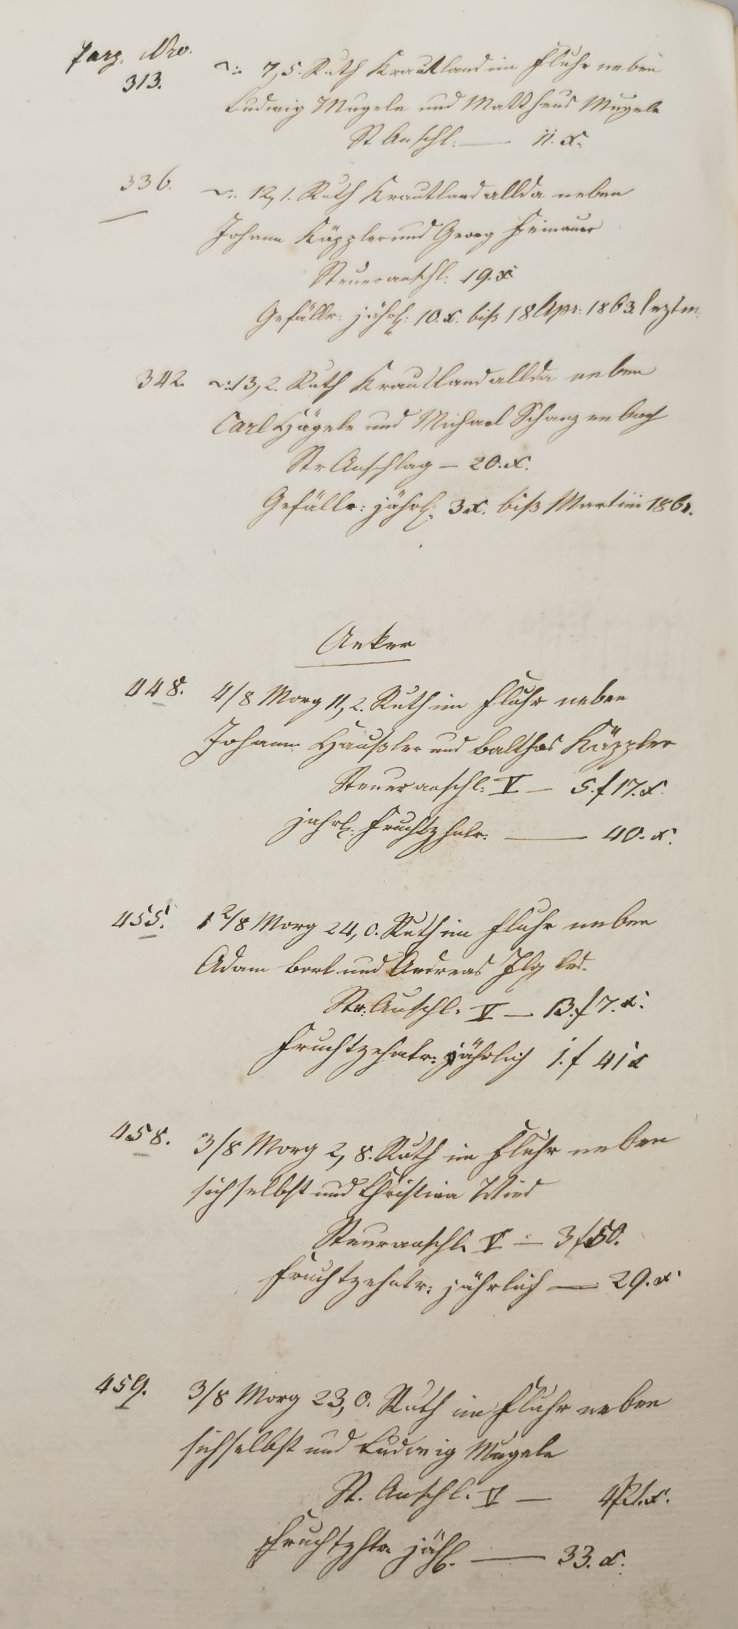 Parz. Nro.
313. ~: 7,5. Ruth Krautland im Fluhr neben
Ludwig Mugele und Mattheus Mugele
St Anschl: — 11. x.
336. ~: 12,1. Ruth Krautland allda neben
Johann Käppler und Georg
Steueranschl: 19. x
Gefälle: jährl: 10. x. biß 18 Apr: 1863 leztm.
342. ~: 13,2. Ruth Krautland allda neben
Carl Hägele und Michael Scharzenbach
Str Anschlag — 20. x.
Gefälle: jährl: 3 x. biß Martini 1861.
Aeker
448. 4/8 Morg 11,2. Ruth im Fluhr neben
Johann Häußler und Balthas Käppler
Steueranschl: V — 5. f 17. x.
jährl: Fruchtzehnte: — 40. x.
455. 1 2/8 Morg 24,0. Ruth im Fluhr neben
Adam und Andreas Ilg led.
Str. Anschl. V — 13. f 7. x.
Fruchtzehnte: jährlich 1. f 41 x
458. 3/8 Morg 2,8. Ruth im Fluhr neben
sich selbst und Christina Wied
Steuranschl. V — 3 f 50.
Fruchtzehnte: jährlich — 29. x
459. 3/8 Morg 23,0. Ruth im Fluhr neben
sich selbst und Ludwig Mugele
St. Anschl: V — 4 f 21. x.
Fruchtzhte jähl. — 33. x.